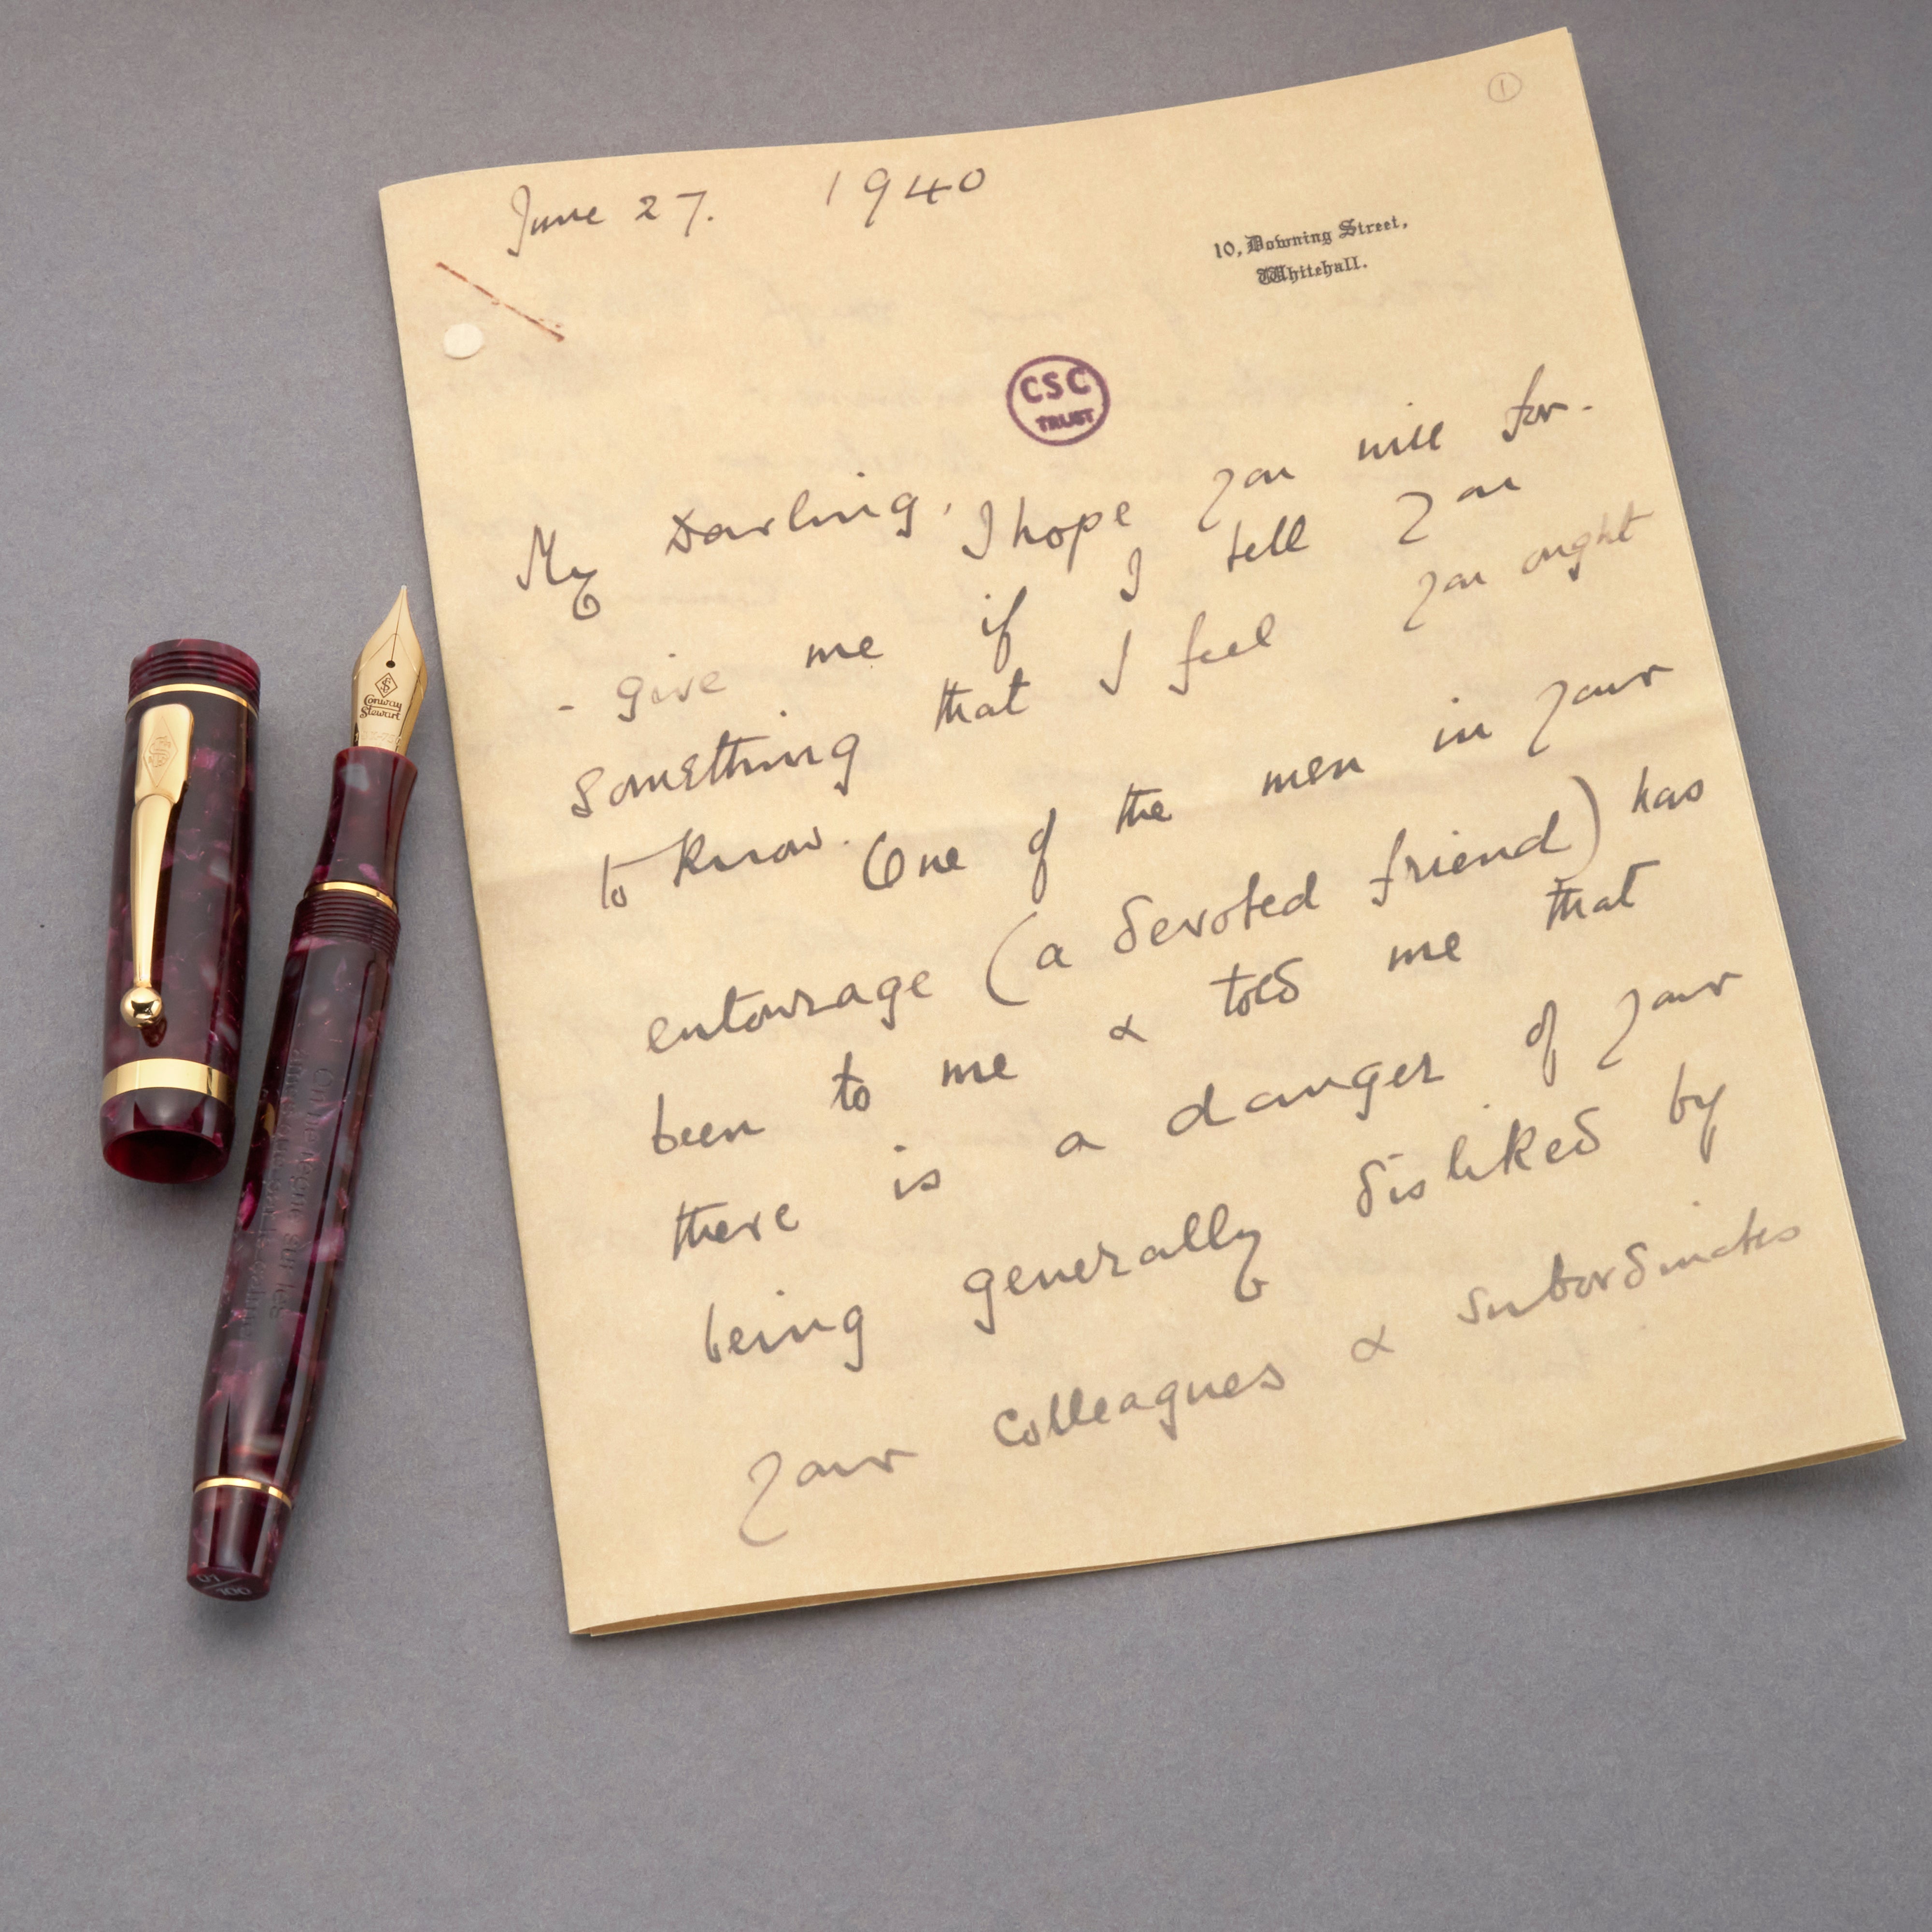 ①
June 27. 1940
10, Downing Street,
Whitehall.
CSC
TRUST
My Darling, I hope you will for-
- give me if I tell you
something that I feel you ought
to know.
One of the men in your
entourage (a devoted friend) has
been to me & told me that
there is a danger of your
being generally disliked by
your colleagues & subordinates
Conway
Stewart
On ne règne sur les
01/100